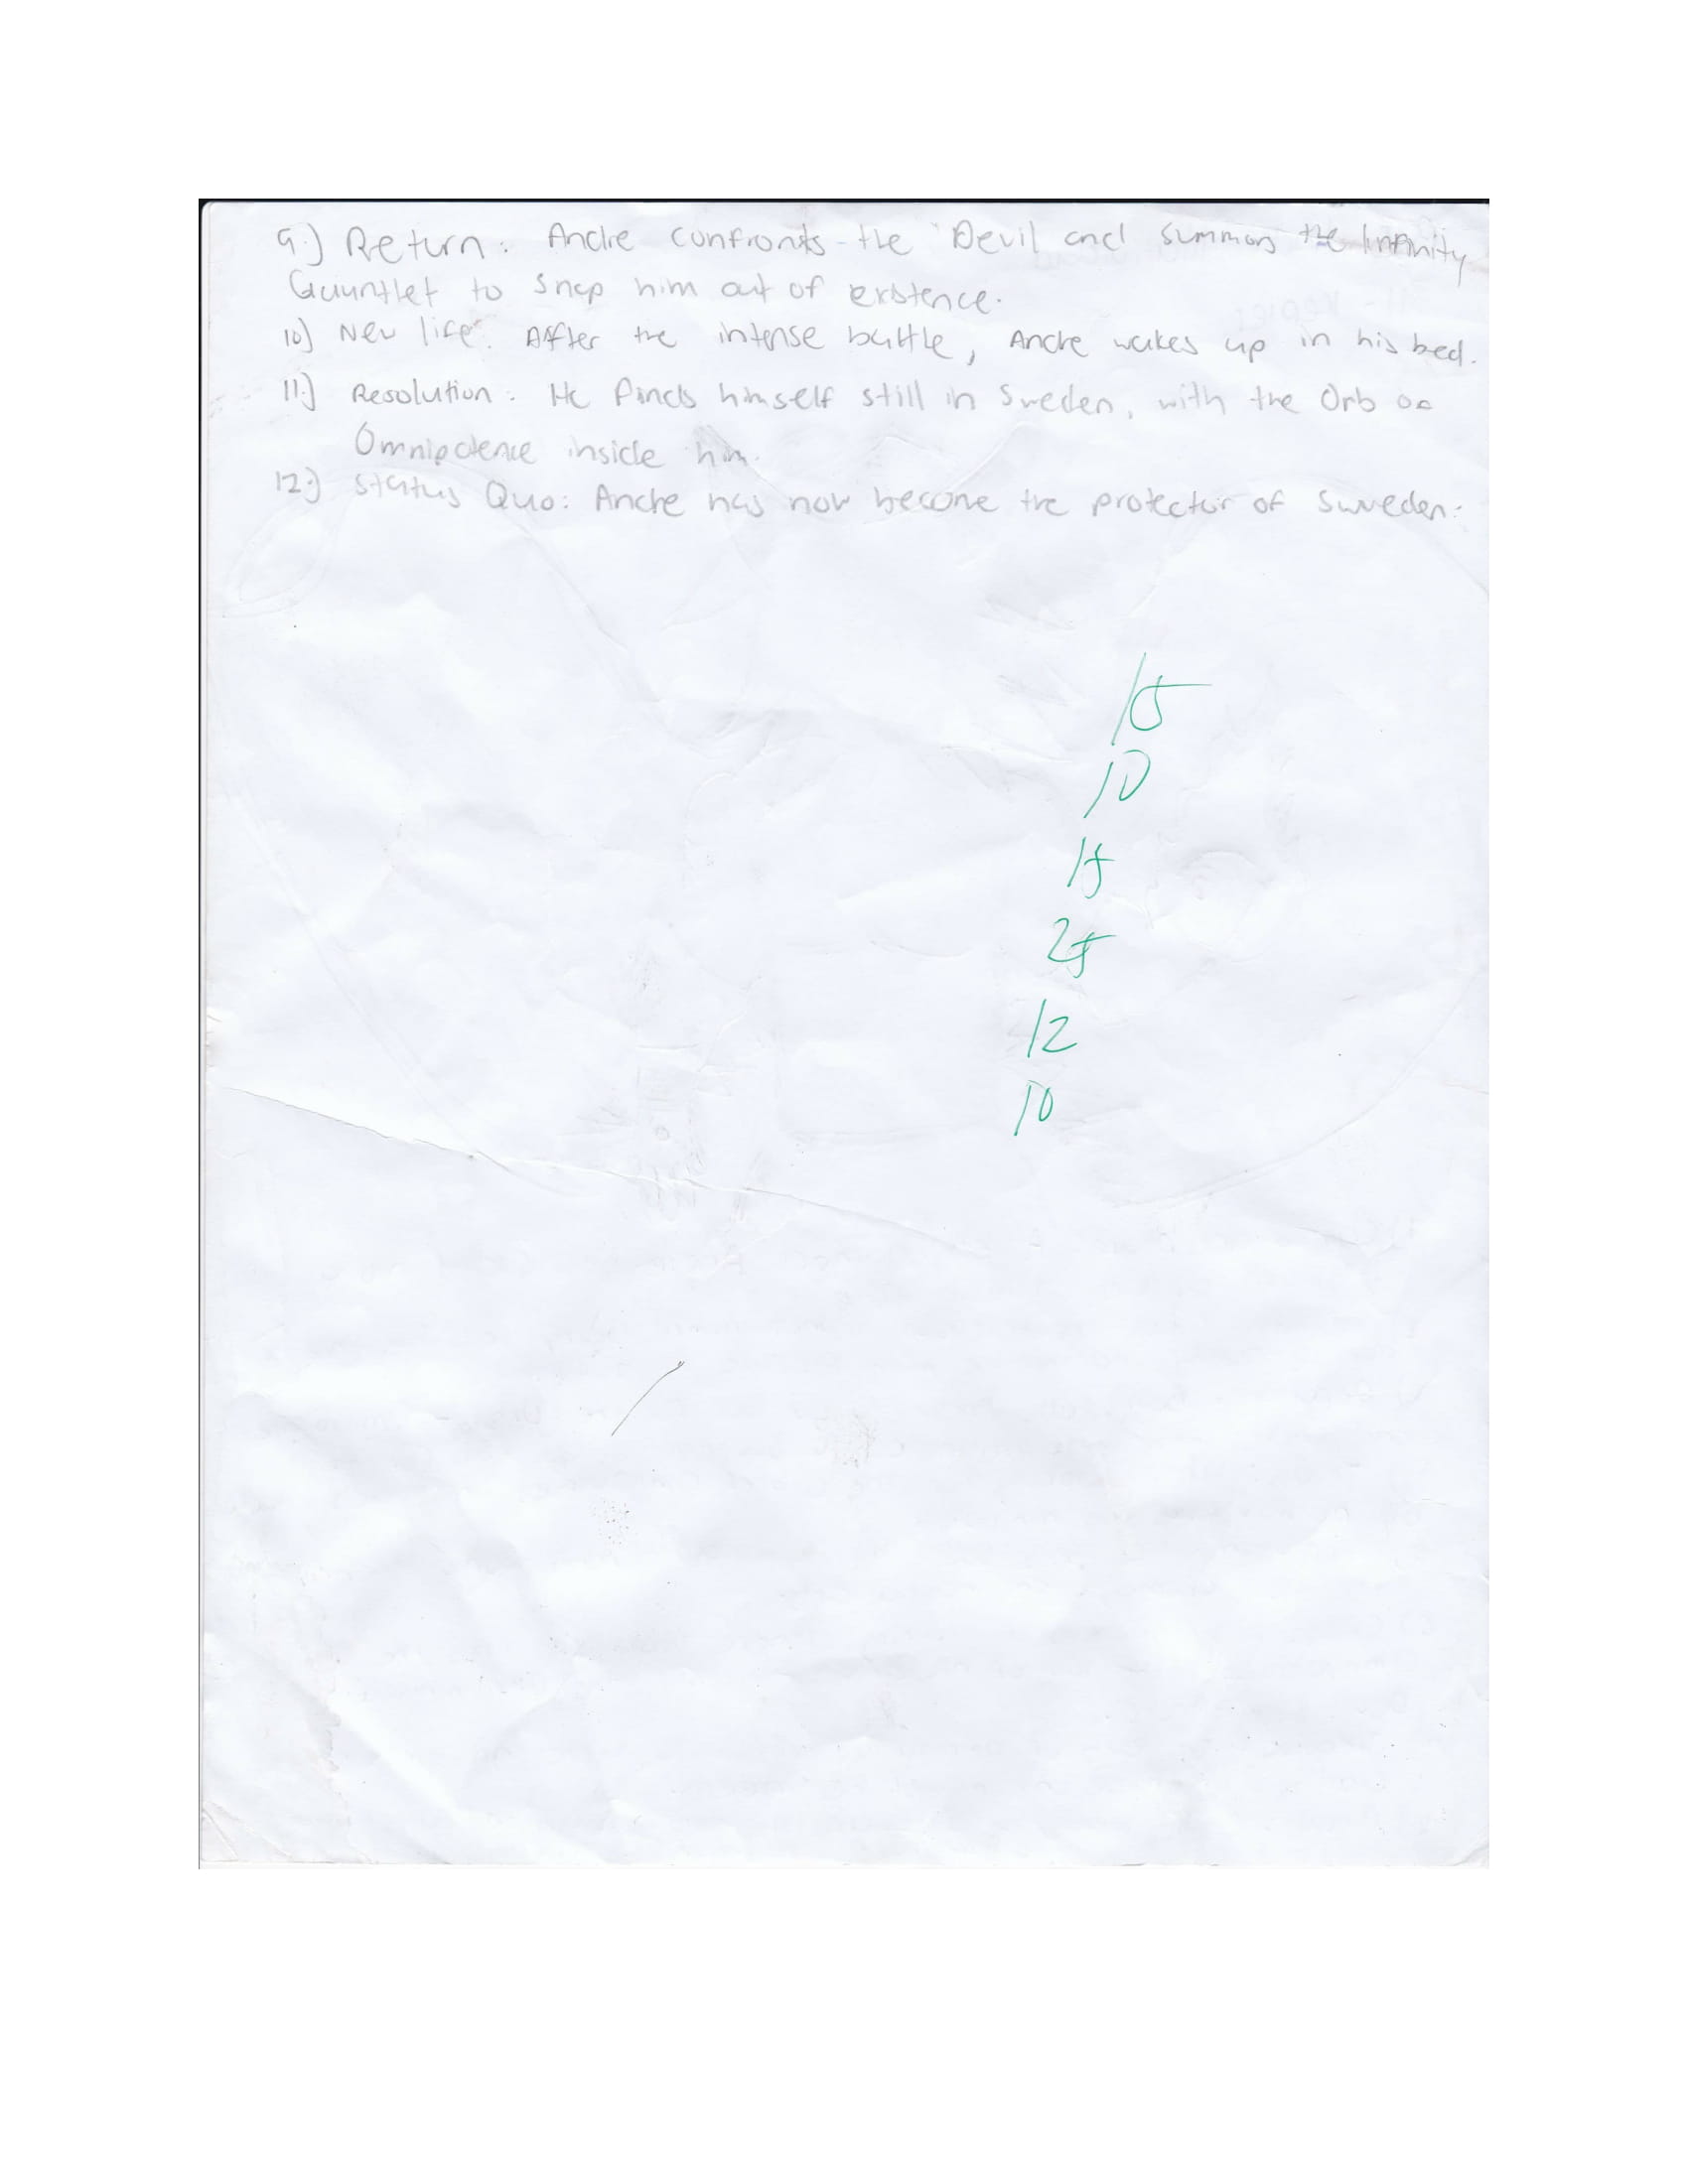 9.) Return: Andre confronts the Devil and summons the Infinity
Gauntlet to snap him out of existence.
10) New life: After the intense battle, Andre wakes up in his bed.
11.) Resolution: He finds himself still in Sweden, with the Orb of
Omnipotence inside him.
12.) Status Quo: Andre has now become the protector of Sweden.
15
10
15
25
12
10